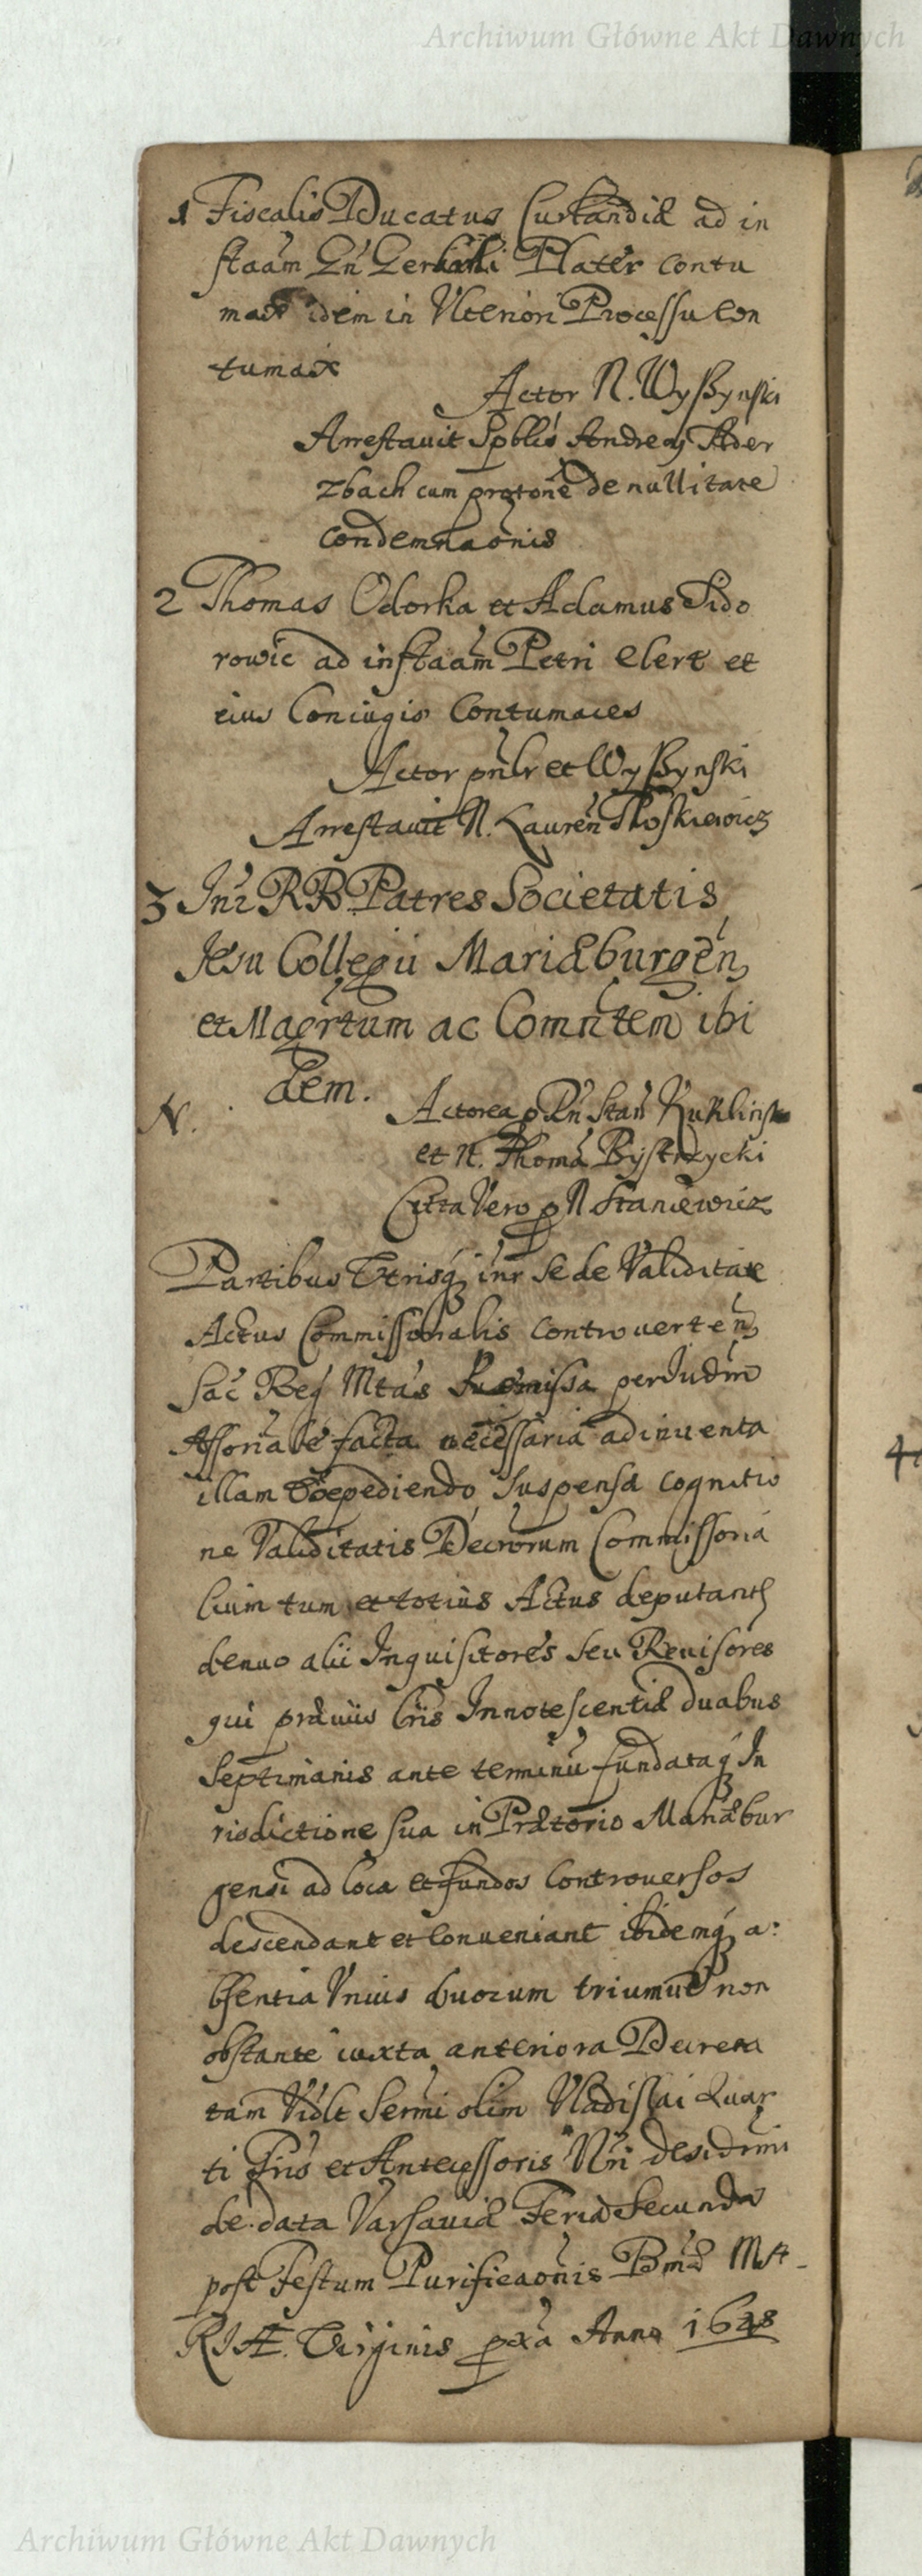 Archiwum Główne Akt Dawnych
1 Fiscalis Ducatus Curlandiæ ad in
staãm Gñ Plater contu
max idem in Ulteriori Processu Con
tumax
Actor N. Wyszynski
Arrestavit Spblis Andreas Ader
zbach cum protone de nullitate
condemnaonis
2 Thomas Odorka et Adamus Sido
rowic ad instaam Petri Elert et
eius Coniugis Contumaces
Actor pnlr et Wyszynski
Arrestavit N. Lauren Thoskiewicz
3 Inr RR Patres Societatis
Jesu Collegii Mariæburgen
et Magrtum ac Commtem ibi
dem.
N. Actorea p Gn Stan Kuklinsk
et N. Thoma Bystrzycki
Citta Vero p N Staniewicz
Partibus Utrisq inr se de Validitate
Actus Commissionalis controverten
Sac Reg Mtas Remissa per Judm
Assoriale facta necessaria adinventa
illam expediendo suspensa cognitio
ne Validitatis Decrorum Commissoria
lium tum et totius Actus deputants
denuo alii Inquisitores seu Revisores
qui præviis Lris Innotescentiæ duabus
Septimanis ante terminu fundataq Iu
risdictione sua in Prætorio Mariæbur
gensi ad loca et fundos Controversos
descendant et Conveniant ibidemq a:
bsentia Unius duorum triumve non
obstante iuxta anteriora Decreta
tam Vidlt Sermi olim Vladislai Quar
ti Fris et Antecessoris Nri desidrmi
de data Varsaviæ Feria Secunda
post Festum Purificaonis Bmæ MA-
RIÆ Virginis Anno
Archiwum Główne Akt Dawnych